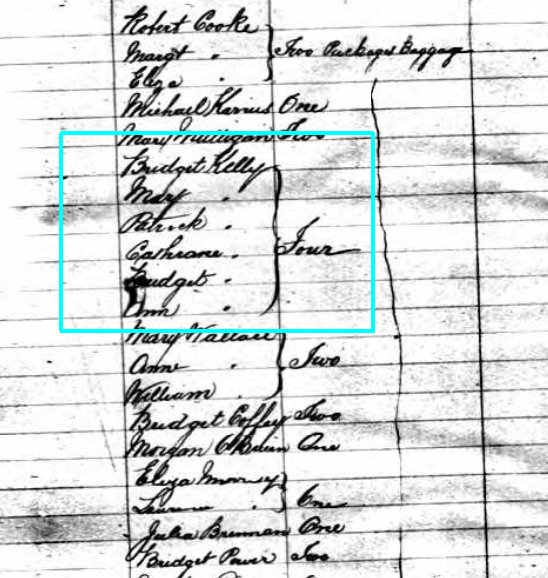 Robert Cooke
Margt "
Eliza "
Two Packages Baggage
Michael Karius One
Mary Mulligan Two
Bridget Kelly
Mary "
Patrick "
Cathrane "
Bridget "
Ann "
Four
Mary Wallace
Anne "
William "
Two
Bridget Coffey Two
Morgan O'Brien One
Eliza
"
One
Julia Brennan One
Bridget Power Two